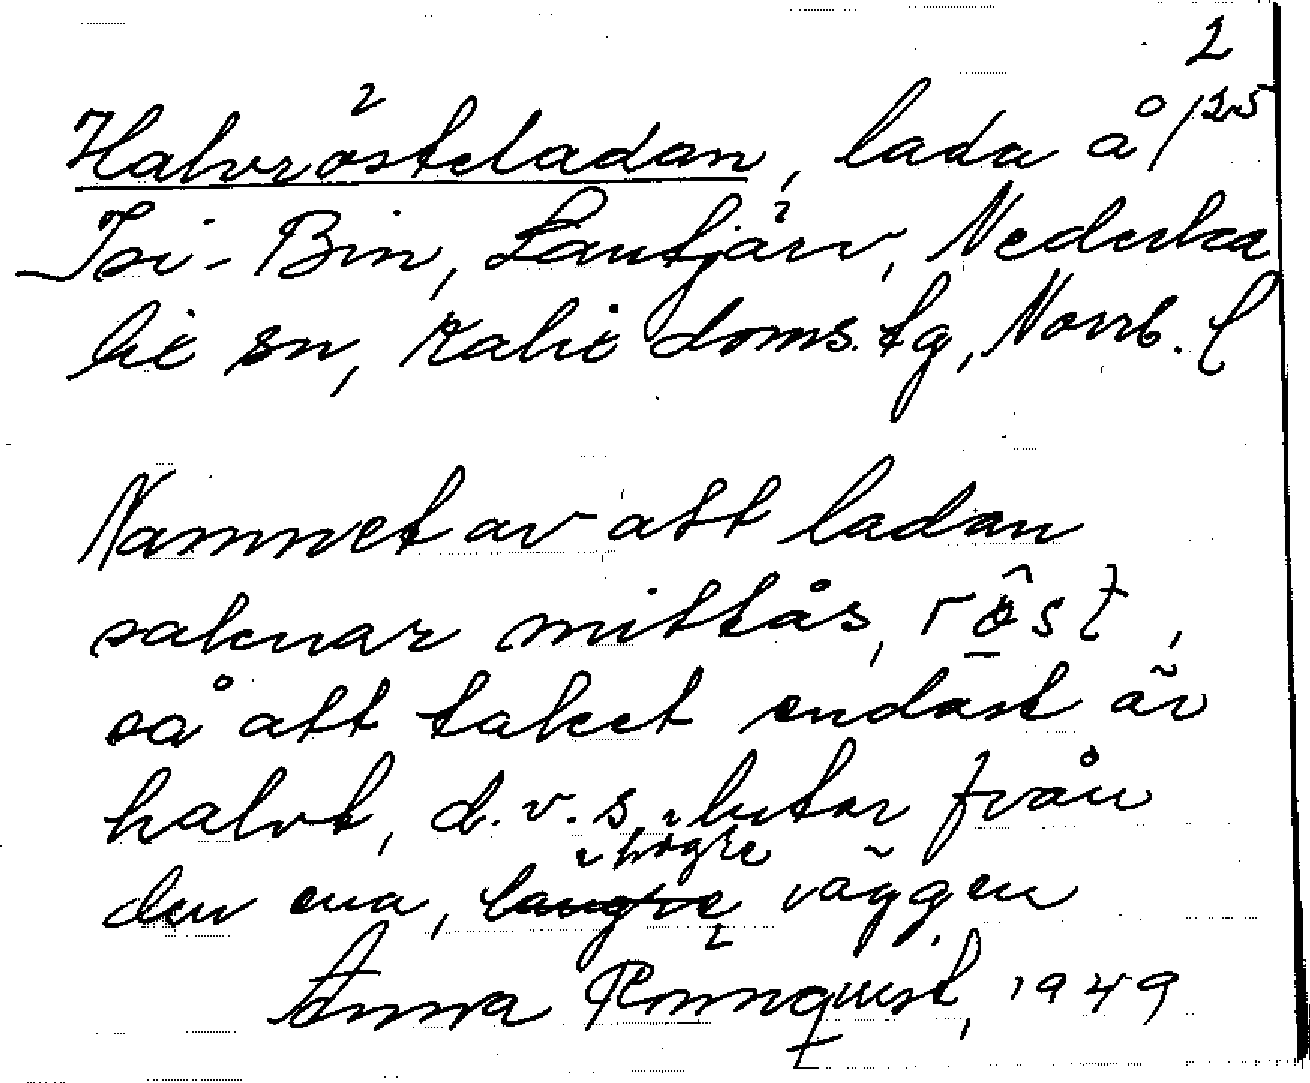 2
Halvrösteladan, lada å /225
Isi-Bin, Lantjärv, Nederka
lix sn, Kalix doms. tg, Norrb. l
Namnet av att ladan
saknar mittås, röst,
så att taket endast är
halvt, d.v.s. lutar från
den ena, högre väggen
Anna Rönnqvist, 1949